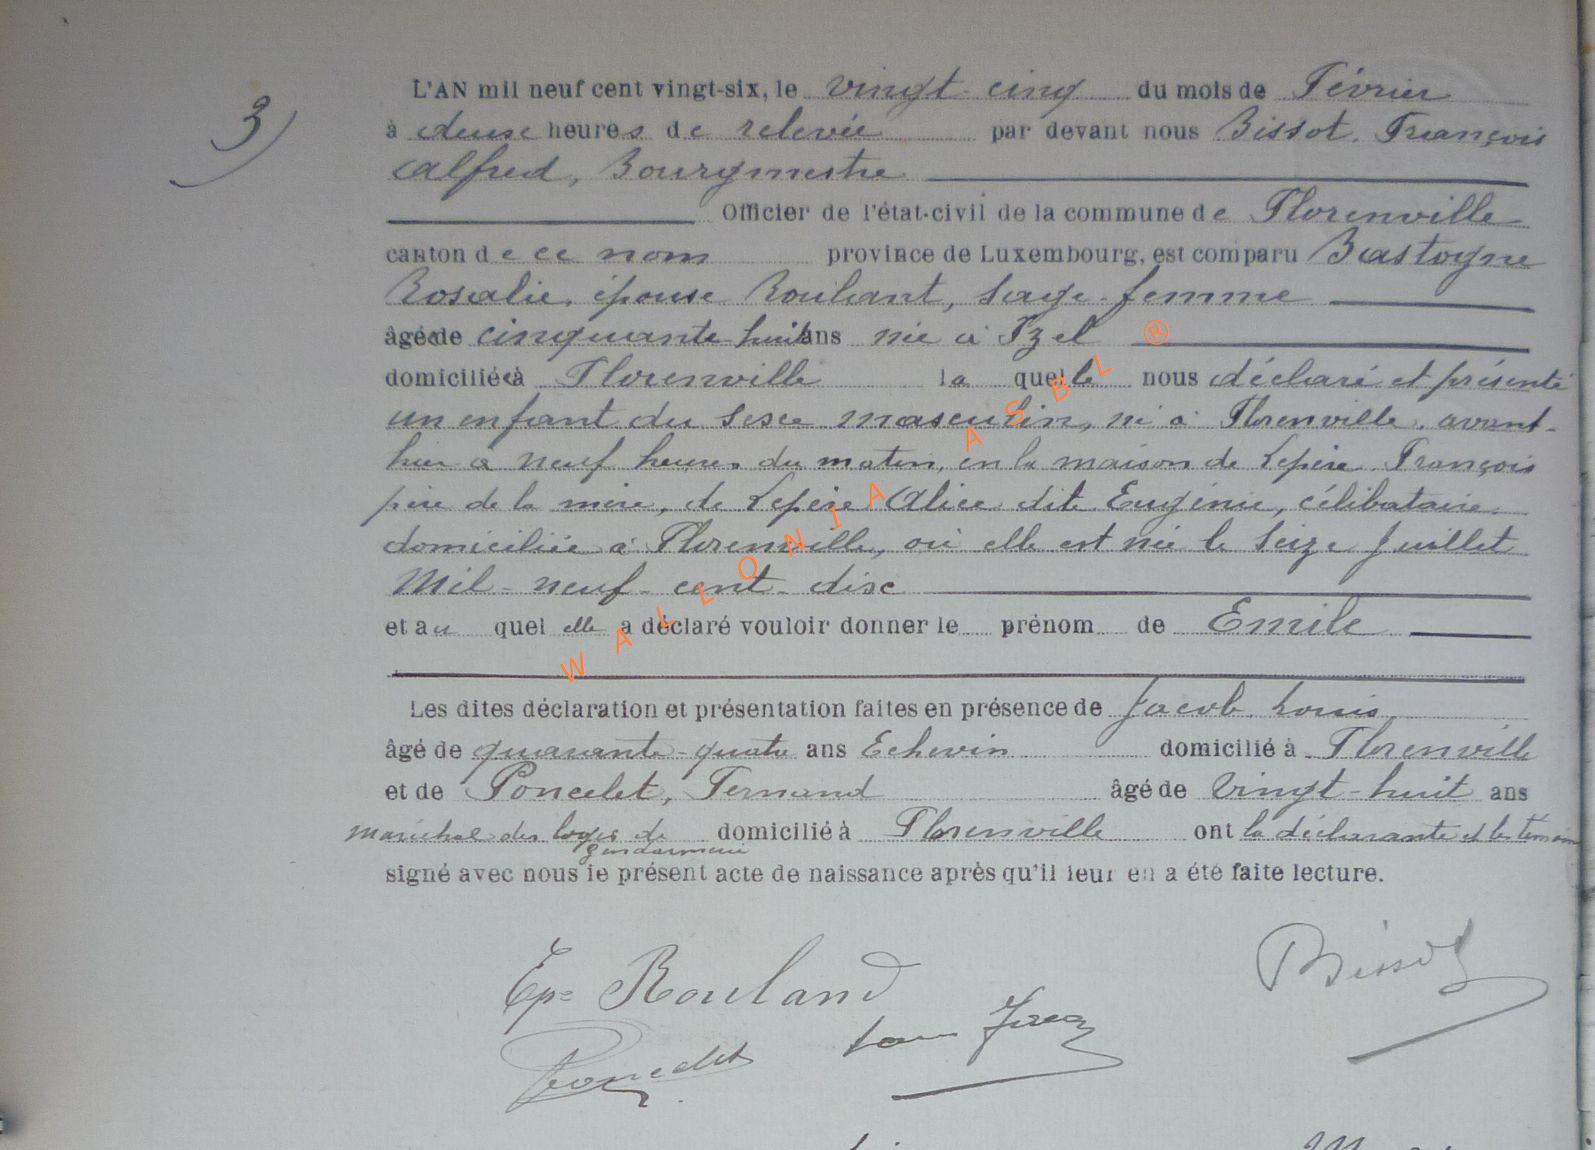 3)
L'AN mil neuf cent vingt-six, le vingt cinq du mois de Février
à deux heures de relevée par devant nous Bissot, François
Alfred, Bourgmestre
Officier de l'état-civil de la commune de Florenville
canton de ce nom province de Luxembourg, est comparu Bastogne
Rosalie, épouse Roulant, sage-femme
âgée de cinquante huit ans née à Izel
domiciliée à Florenville laquelle nous déclaré et présenté
un enfant du sexe masculin, né à Florenville, avant-
hier à neuf heures du matin, en la maison de Lepère François
père de la mère, de Lepère Alice dite Eugénie, célibataire
domiciliée à Florenville, où elle est née le seize Juillet
Mil-neuf-cent-dix
et au quel elle a déclaré vouloir donner le prénom de Emile
Les dites déclaration et présentation faites en présence de Jacob Louis
âgé de quarante-quatre ans Echevin domicilié à Florenville
et de Poncelet, Fernand âgé de vingt-huit ans
maréchal des logis de gendarmerie domicilié à Florenville ont la déclarante et les témoins
signé avec nous le présent acte de naissance après qu'il leur en a été faite lecture.
Epse Rouland Bissot
Poncelet Louis Jacob
WALLONIA ASBL ®